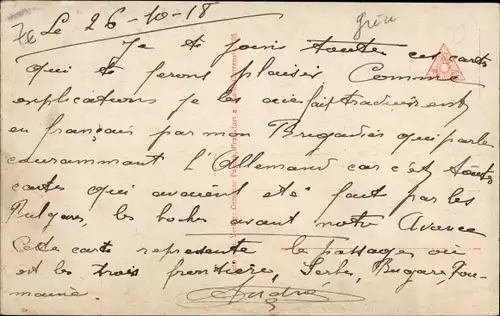 Le 26-10-18
Je te joins toutes ces cartes
qui te ferons plaisir Comme
explications je les ai fait traduire
en français par mon Brigadier qui parle
courammant l'Allemand car c'est toutes
cartes qui avaient été fait par les
Bulgares les boches avant notre Avance
Cette carte représente le passage où
est les trois frontière, Serbe, Bugare, Rou-
manie. André